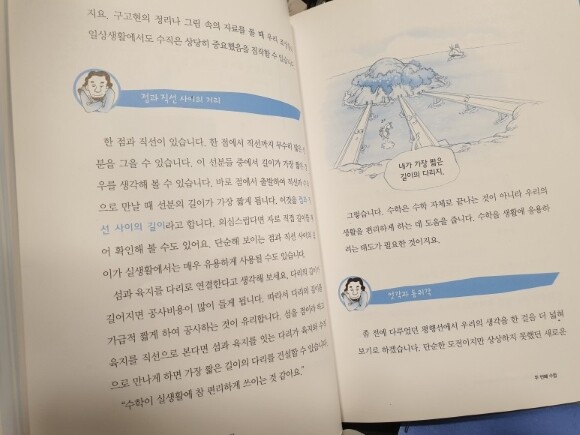 지요. 구고현의 정리나 그림 속의 지료를 볼 때 우리 조상들의
일상생활에서도 수직은 상당히 중요했음을 짐작할 수 있습니다.
점과 직선 사이의 거리
한 점과 직선이 있습니다. 한 점에서 직선까지 무수히 많은 선
분을 그을 수 있습니다. 이 선분들 중에서 길이가 가장 짧은
우를 생각해 볼 수 있습니다. 바로 점에서 출발하여 직선과
으로 만날 때 선분의 길이가 가장 짧게 됩니다. 이것을 점과
선 사이의 길이라고 합니다. 의심스럽다면 자로 직접 길이를
어 확인해 볼 수도 있어요. 단순해 보이는 점과 직선 사이의
이가 실생활에서는 매우 유용하게 사용될 수도 있습니다.
섬과 육지를 다리로 연결한다고 생각해 보세요. 다리의 길이가
길어지면 공사비용이 많이 들게 됩니다. 따라서 다리의 길이를
가급적 짧게 하여 공사하는 것이 유리합니다. 섬을 점이라 하고
육지를 직선으로 본다면 섬과 육지를 잇는 다리가 육지와 수직
으로 만나게 하면 가장 짧은 길이의 다리를 건설할 수 있습니다.
“수학이 실생활에 참 편리하게 쓰이는 것 같아요.”
내가 가장 짧은
길이의 다리지.
그렇습니다. 수학은 수학 자체로 끝나는 것이 아니라 우리의
생활을 편리하게 하는 데 도움을 줍니다. 수학을 생활에 응용하
려는 태도가 필요한 것이지요.
엇각과 동위각
좀 전에 다루었던 평행선에서 우리의 생각을 한 걸음 더 넓혀
보기로 하겠습니다. 단순한 모전이지만 상상하지 못했던 새로운
두 번째 수업